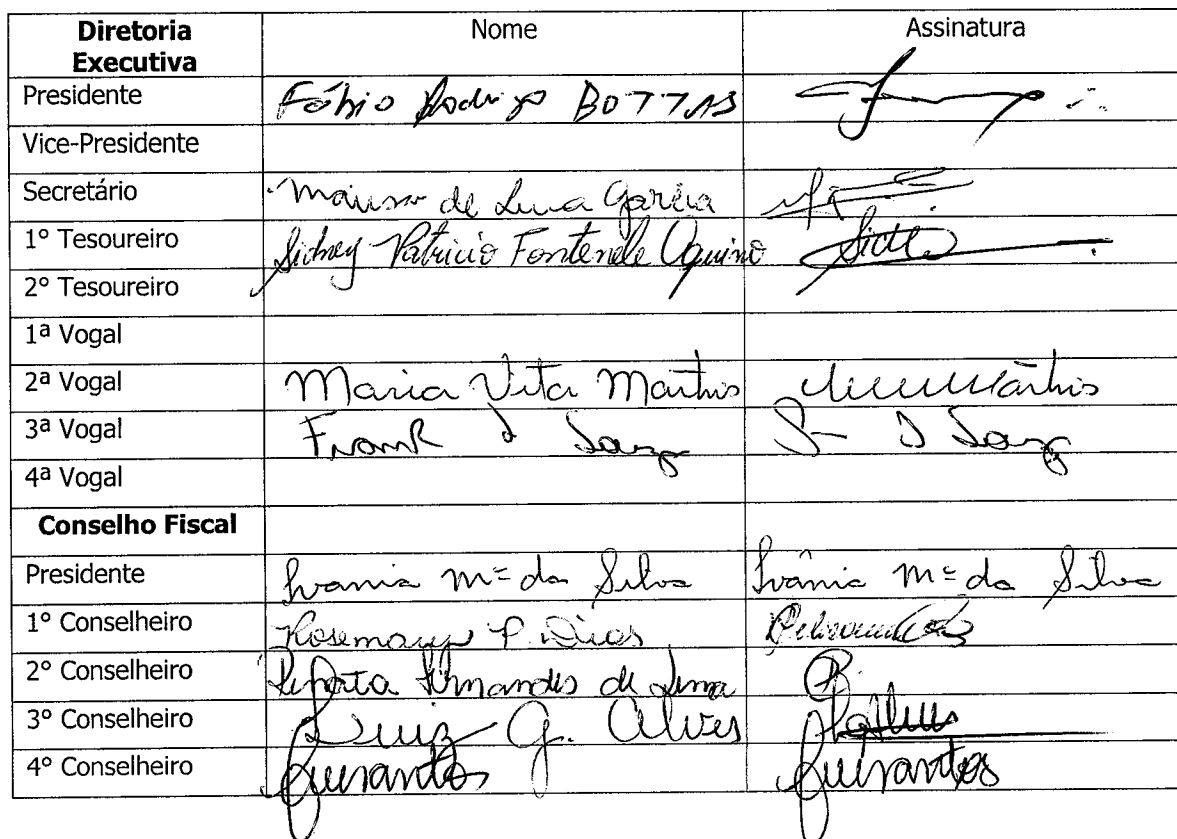 Diretoria Executiva Nome Assinatura
Presidente Fábio Rodrigo BOTTAS
Vice-Presidente
Secretário de Garcia
1º Tesoureiro Sidney Patricio Fontenele Aquino Sidney
2º Tesoureiro
1ª Vogal
2ª Vogal Maria Vita Martins Martins
3ª Vogal Frank d Souza D Souza
4ª Vogal
Conselho Fiscal
Presidente Ivania Mª da Silva Ivânia Mª da Silva
1º Conselheiro Rosemary P. Dias
2º Conselheiro Renata Fernandes de Lima
3º Conselheiro Luiz G. Alves
4º Conselheiro